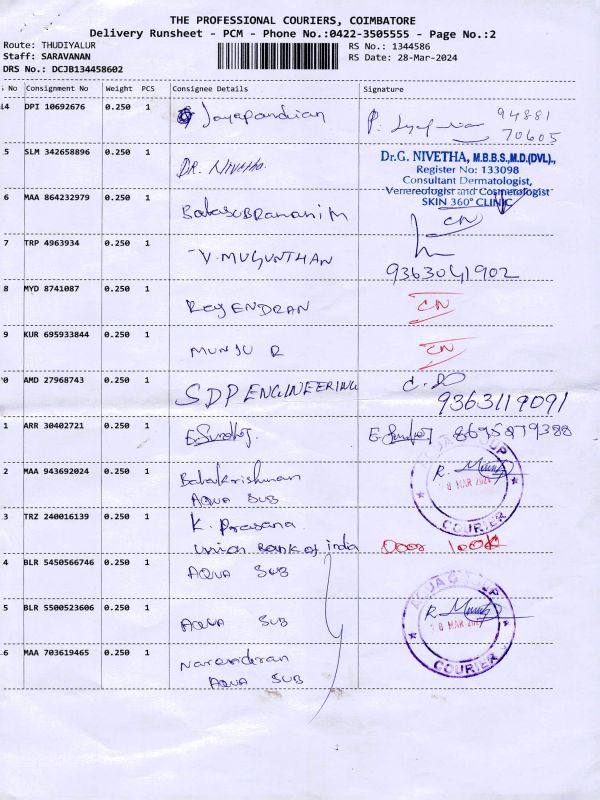 THE PROFESSIONAL COURIERS, COIMBATORE
Delivery Runsheet - PCM - Phone No.:0422-3505555 - Page No.:2
Route: THUDIYALUR
RS No.: 1344586
Staff: SARAVANAN
RS Date: 28-Mar-2024
DRS No.: DCJB134458602
No Consignment No Weight PCS Consignee Details Signature
14 DPI 10692676 0.250 1 Jayapandian 94881
70605
5 SLM 342658896 0.250 1 DR. Nivetha.
Dr.G. NIVETHA, M.B.B.S.,M.D.(DVL).,
Register No: 133098
Consultant Dermatologist,
Venereologist and Cosmetologist
SKIN 360° CLINIC
6 MAA 864232979 0.250 1 BalaSUBRAMANIM CN
7 TRP 4963934 0.250 1 V. MUGUNTHAN
9363041902
8 MYD 8741087 0.250 1 RajENDRAN CN
9 KUR 695933844 0.250 1 MUNJU R CN
0 AMD 27968743 0.250 1 SDP ENGINEERING
9363119091
1 ARR 30402721 0.250 1 8695879388
2 MAA 943692024 0.250 1 Balakrishnan
AQUA SUB
AQUA GROUP
28 MAR 2024
COURIER
3 TRZ 240016139 0.250 1 K. Prasana
Union Bank of India Door lock
4 BLR 5450566746 0.250 1 AQUA SUB
5 BLR 5500523606 0.250 1 AQUA SUB
AQUA GROUP
28 MAR 2024
COURIER
6 MAA 703619465 0.250 1 Narendiran
AQUA SUB